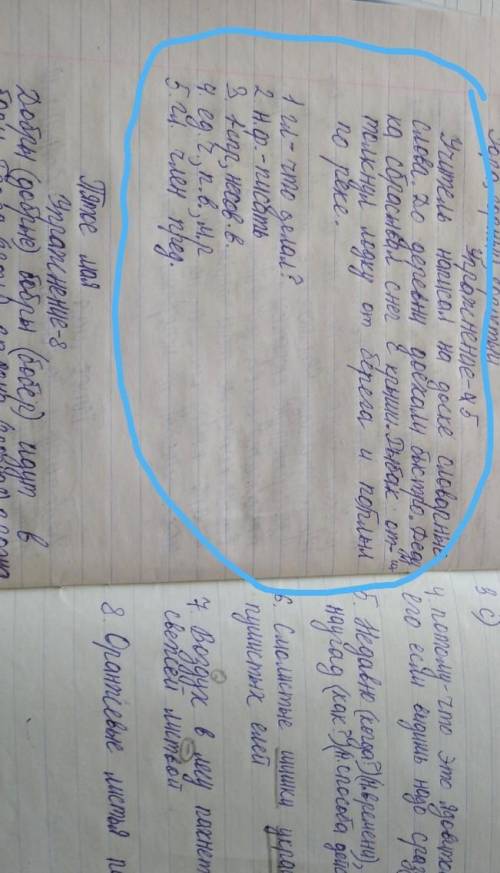 Упражнение-45
Учитель написал на доске словарные
слова. До деревни доехали быстро. Федь
ка сбрасывал снег с крыши. Рыбак от-
толкнул лодку от берега и поплыл
по реке.
1 гл - что делал?
2 н.ф. - писать
3. I спр, несов. в.
4 ед. ч, п. в, м.р
5. гл. член пред.
Пятое мая
Упражнение-8
Добрый (добрые) бобры (бобёр) идут в
4. Потому-что это ядовитое
его если видишь надо сраз
5. Недавно (когда?) (времени),
наугад (как?) (способа дейс
6. Смолистые шишки украш
пушистых елей
7. Воздух в лесу пахнет
свежей листвой
8. Оранжевые листья п